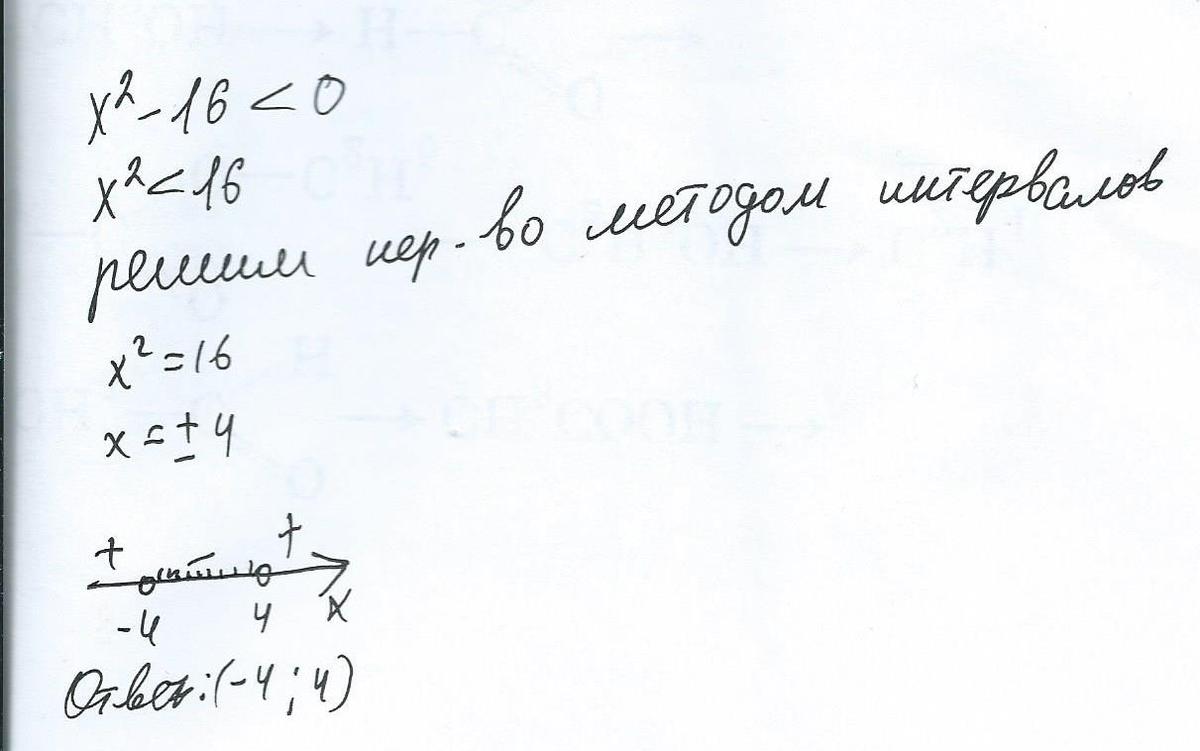 x² - 16 < 0
x² < 16
решим нер-во методом интервалов
x² = 16
x = ± 4
+ - +
-4 4 x
Ответ: (-4 ; 4)